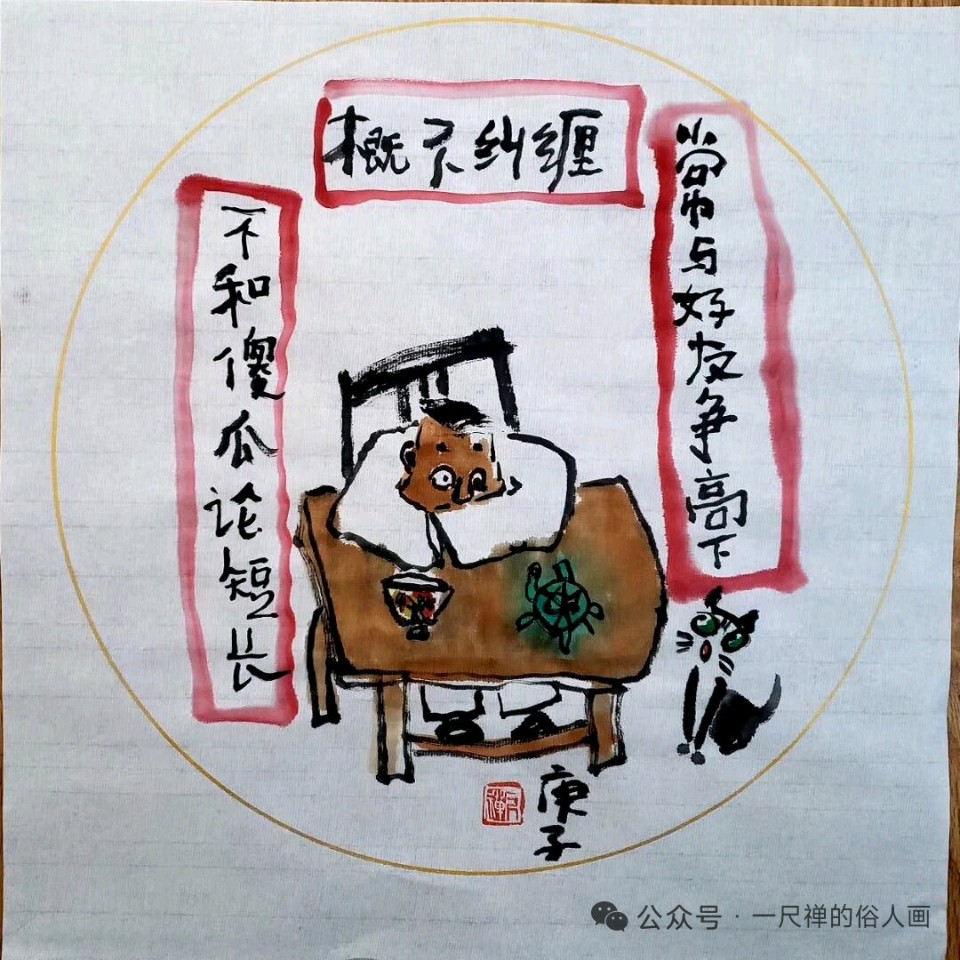 概不纠缠
常与好友争高下
不和傻瓜论短长
庚子
公众号·一尺禅的俗人画